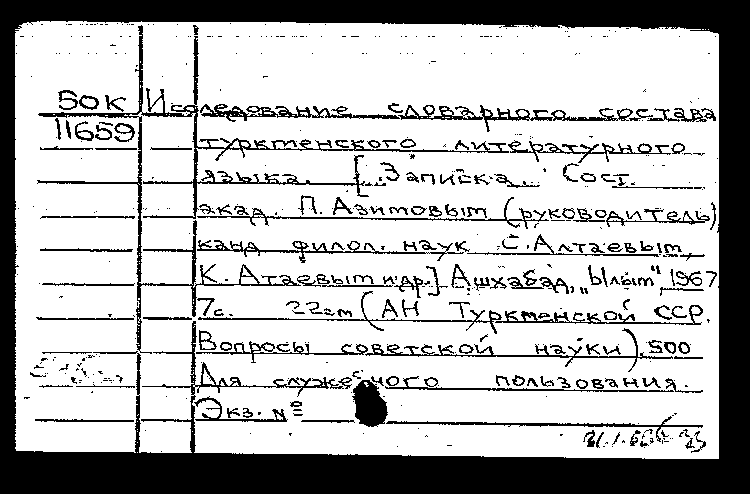 50К Исследование словарного состава
11659 туркменского литературного
языка. [„Записка„ Сост.
акад. П. Азимовым (руководитель)
канд филол. наук С. Алтаевым,
К. Атаевым и др.] Ашхабад, „Ылым", 1967
7с. 22см (АН Туркменской ССР.
Вопросы советской науки). 500
Для служебного пользования.
Экз. №